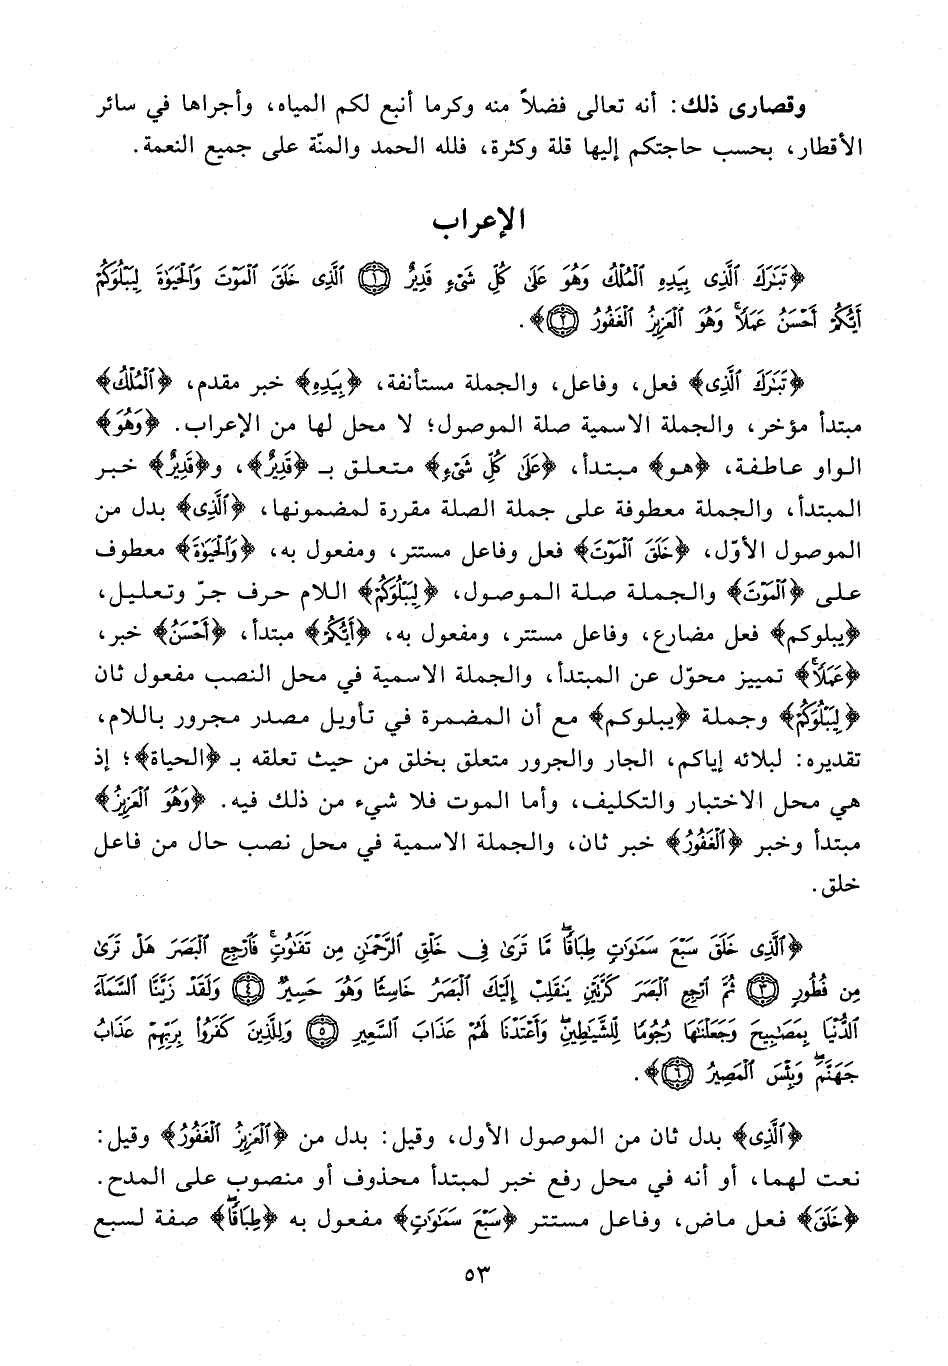 وقصارى ذلك: أنه تعالى فضلاً منه وكرما أنبع لكم المياه، وأجراها في سائر
الأقطار، بحسب حاجتكم إليها قلة وكثرة، فلله الحمد والمنّة على جميع النعمة.
الإعراب
﴿تَبَٰرَكَ ٱلَّذِى بِيَدِهِ ٱلْمُلْكُ وَهُوَ عَلَىٰ كُلِّ شَىْءٍ قَدِيرٌ ١ ٱلَّذِى خَلَقَ ٱلْمَوْتَ وَٱلْحَيَوٰةَ لِيَبْلُوَكُمْ
أَيُّكُمْ أَحْسَنُ عَمَلًا ۚ وَهُوَ ٱلْعَزِيزُ ٱلْغَفُورُ ٢﴾.
﴿تَبَٰرَكَ ٱلَّذِى﴾ فعل، وفاعل، والجملة مستأنفة، ﴿بِيَدِهِ﴾ خبر مقدم، ﴿ٱلْمُلْكُ﴾
مبتدأ مؤخر، والجملة الاسمية صلة الموصول؛ لا محل لها من الإعراب. ﴿وَهُوَ﴾
الواو عاطفة، ﴿هو﴾ مبتدأ، ﴿عَلَىٰ كُلِّ شَىْءٍ﴾ متعلق بـ ﴿قَدِيرٌ﴾، و﴿قَدِيرٌ﴾ خبر
المبتدأ، والجملة معطوفة على جملة الصلة مقررة لمضمونها، ﴿ٱلَّذِى﴾ بدل من
الموصول الأوّل، ﴿خَلَقَ ٱلْمَوْتَ﴾ فعل وفاعل مستتر، ومفعول به، ﴿وَٱلْحَيَوٰةَ﴾ معطوف
على ﴿ٱلْمَوْتَ﴾ والجملة صلة الموصول، ﴿لِيَبْلُوَكُمْ﴾ اللام حرف جرّ وتعليل،
﴿يبلوكم﴾ فعل مضارع، وفاعل مستتر، ومفعول به، ﴿أَيُّكُمْ﴾ مبتدأ، ﴿أَحْسَنُ﴾ خبر،
﴿عَمَلًا ۚ﴾ تمييز محوّل عن المبتدأ، والجملة الاسمية في محل النصب مفعول ثان
﴿لِيَبْلُوَكُمْ﴾ وجملة ﴿يبلوكم﴾ مع أن المضمرة في تأويل مصدر مجرور باللام،
تقديره: لبلائه إياكم، الجار والجرور متعلق بخلق من حيث تعلقه بـ ﴿الحياة﴾؛ إذ
هي محل الاختبار والتكليف، وأما الموت فلا شيء من ذلك فيه. ﴿وَهُوَ ٱلْعَزِيزُ﴾
مبتدأ وخبر ﴿ٱلْغَفُورُ﴾ خبر ثان، والجملة الاسمية في محل نصب حال من فاعل
خلق.
﴿ٱلَّذِى خَلَقَ سَبْعَ سَمَٰوَٰتٍ طِبَاقًا ۖ مَّا تَرَىٰ فِى خَلْقِ ٱلرَّحْمَٰنِ مِن تَفَٰوُتٍ ۚ فَٱرْجِعِ ٱلْبَصَرَ هَلْ تَرَىٰ
مِن فُطُورٍ ٣ ثُمَّ ٱرْجِعِ ٱلْبَصَرَ كَرَّتَيْنِ يَنقَلِبْ إِلَيْكَ ٱلْبَصَرُ خَاسِئًا وَهُوَ حَسِيرٌ ٤ وَلَقَدْ زَيَّنَّا ٱلسَّمَآءَ
ٱلدُّنْيَا بِمَصَٰبِيحَ وَجَعَلْنَٰهَا رُجُومًا لِّلشَّيَٰطِينِ ۖ وَأَعْتَدْنَا لَهُمْ عَذَابَ ٱلسَّعِيرِ ٥ وَلِلَّذِينَ كَفَرُوا۟ بِرَبِّهِمْ عَذَابُ
جَهَنَّمَ ۖ وَبِئْسَ ٱلْمَصِيرُ ٦﴾.
﴿ٱلَّذِى﴾ بدل ثان من الموصول الأول، وقيل: بدل من ﴿ٱلْعَزِيزُ ٱلْغَفُورُ﴾ وقيل:
نعت لهما، أو أنه في محل رفع خبر لمبتدأ محذوف أو منصوب على المدح.
﴿خَلَقَ﴾ فعل ماض، وفاعل مستتر ﴿سَبْعَ سَمَٰوَٰتٍ﴾ مفعول به ﴿طِبَاقًا ۖ﴾ صفة لسبع
٥٣